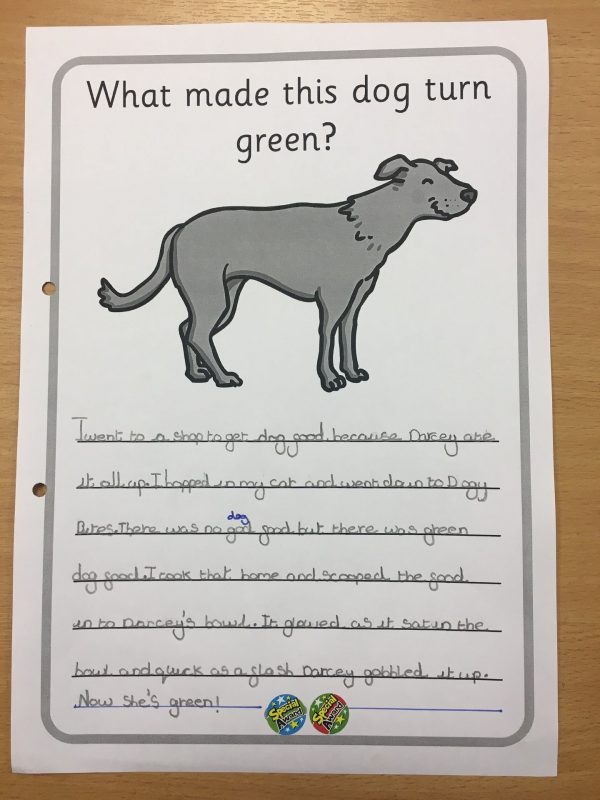 What made this dog turn
green?
I went to a shop to get dog food because Darcey ate
it all up. I hopped in my car and went down to Dogy
Bites. There was no god food but there was green
dog
dog food. I took that home and scooped the food
in to Darcey's bowl. It glowed as it sat in the
bowl and quick as a flash Darcey gobbled it up.
Now she's green!
Special Award
Special Award